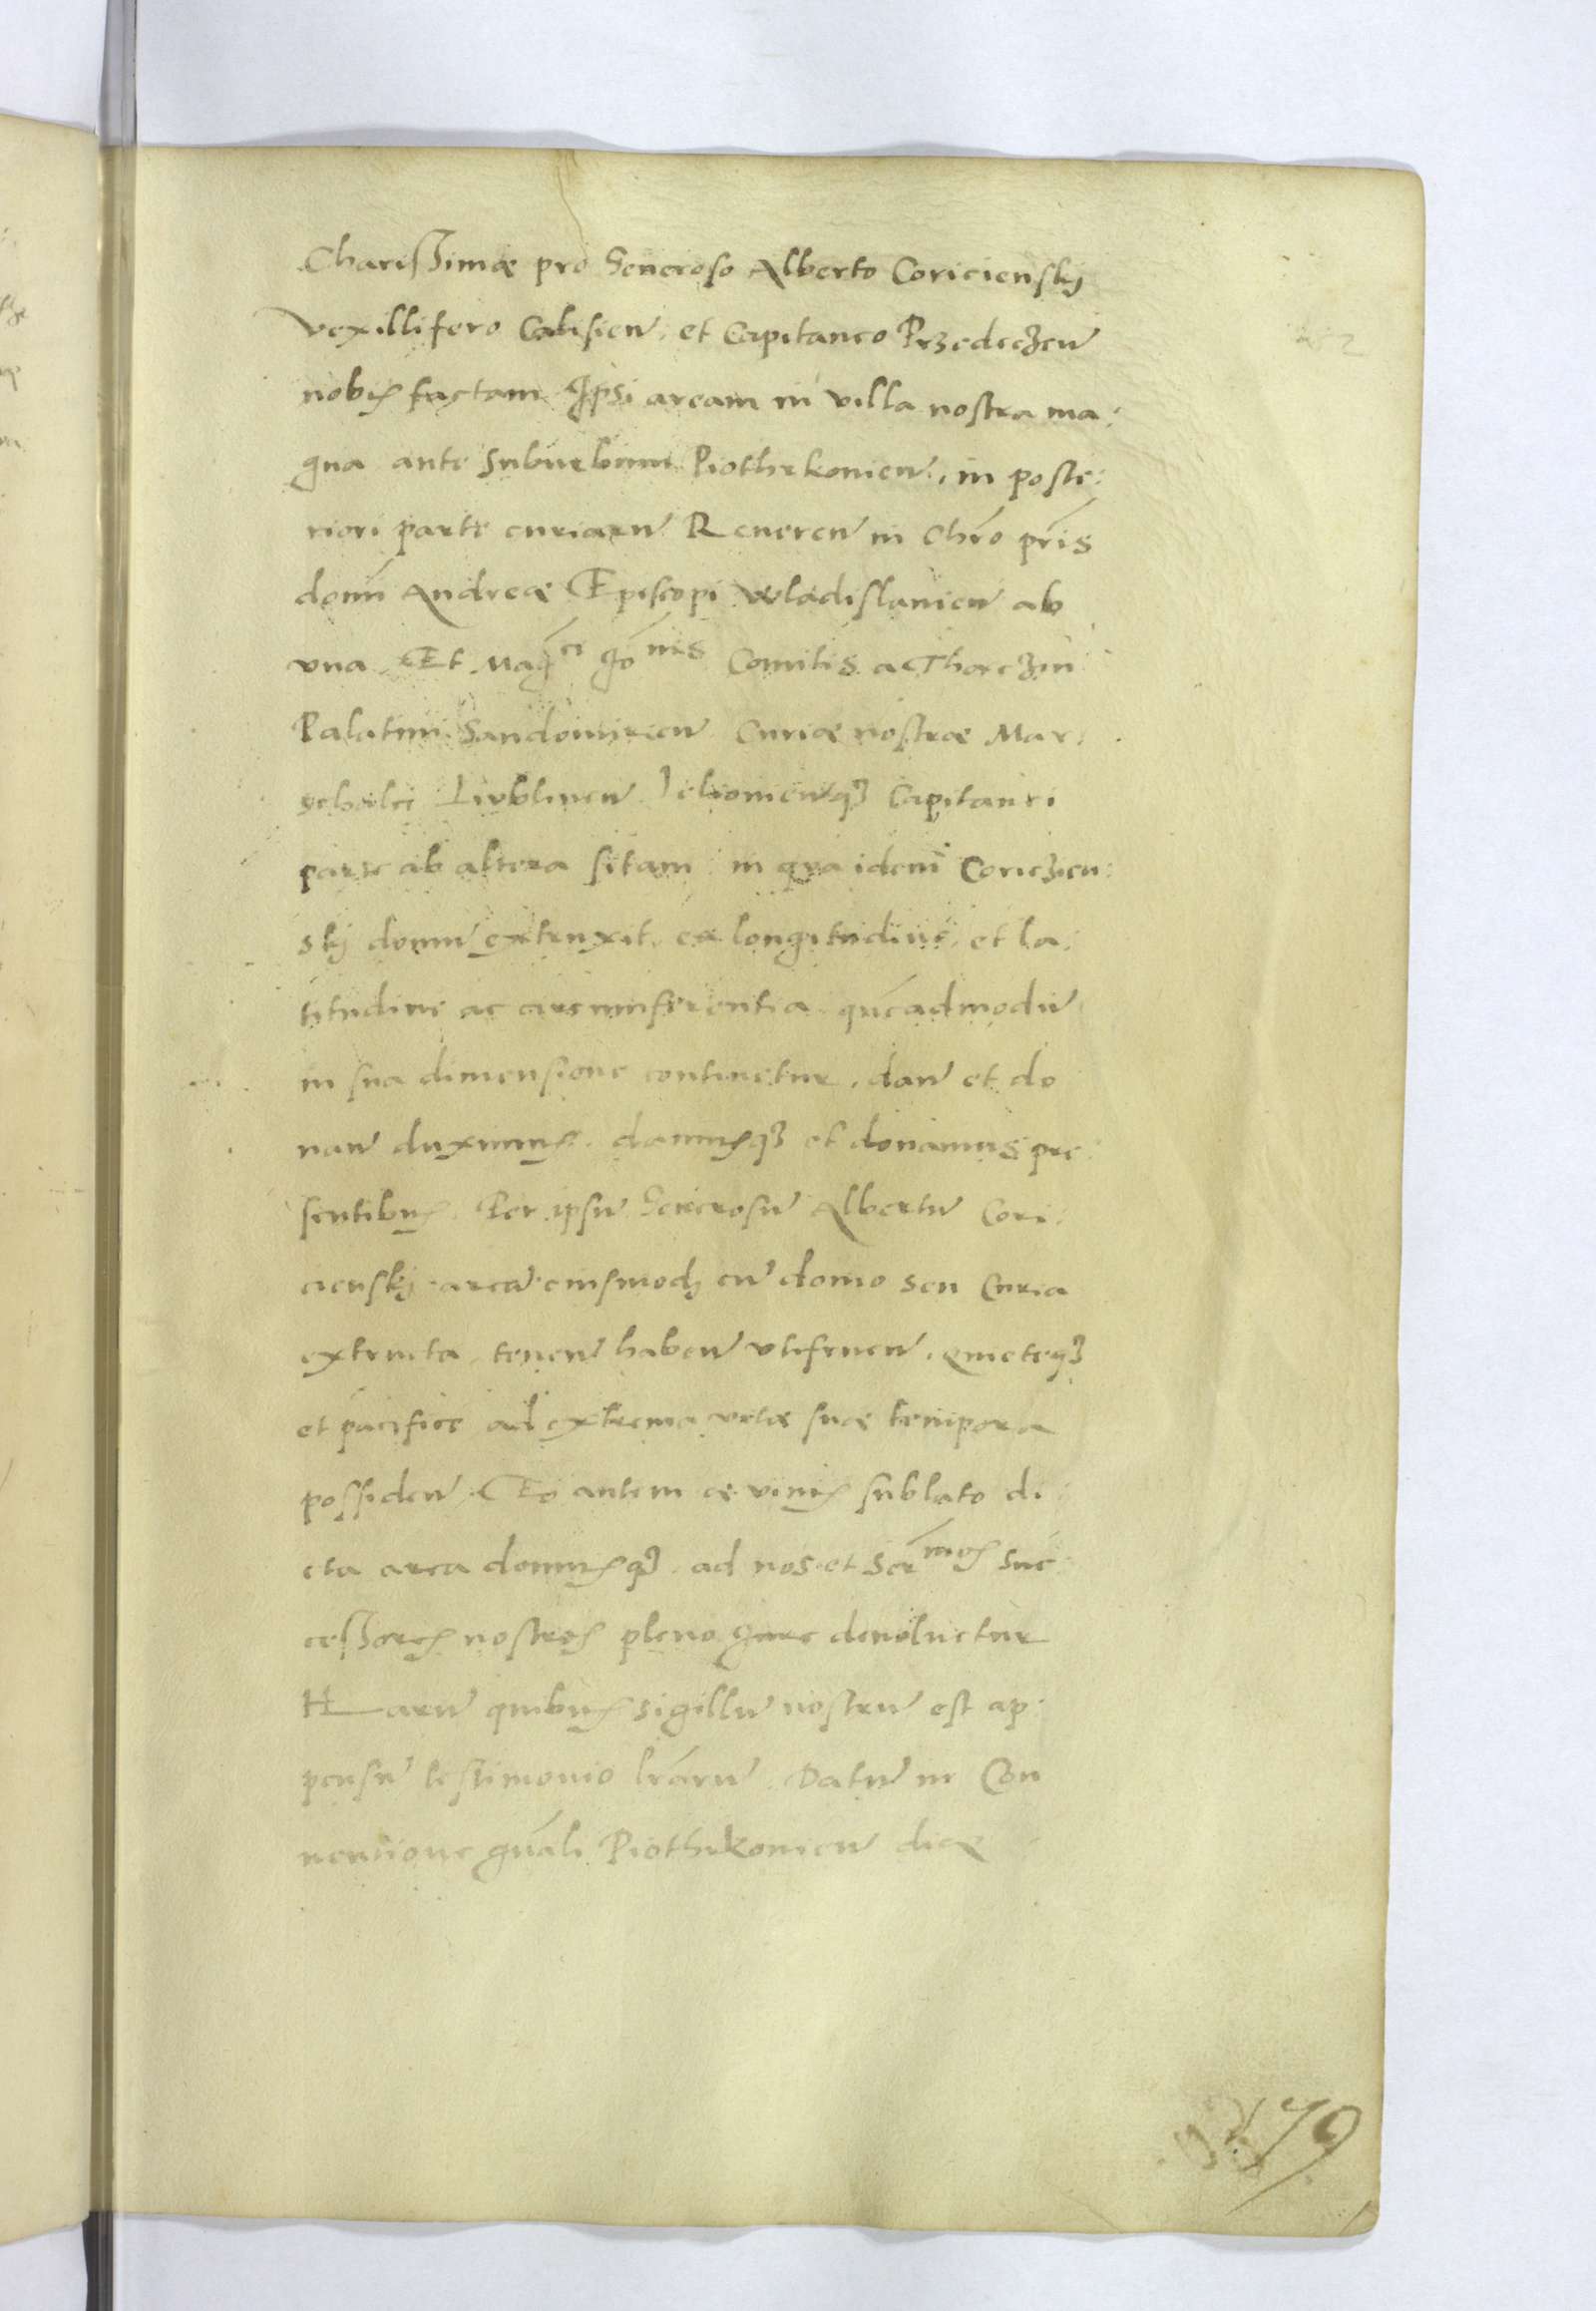 Charissimæ pro Generoso Alberto Coricienskj
vexillifero Calisien̄. et Capitaneo Przedeczen̄
nobis factam Ipsi aream in villa nostra ma:
gna ante Suburbium Piothrkovien̄. in poste:
riori parte curiarū Reveren̄ in Chr̄o pr̄is
domī Andreæ Episcopi Wladislavien̄ ab
vna. Et Mag̅ci Jo̅nis Comitis a Tharczin
Palatini Sandomirien̄ Curiæ nostræ Mar:
schalci Lublinen̄ capitanei
parte ab altera sitam in qva idem Coriczien:
skj domū extruxit. ex longitudine. et la:
titudine ac circumferentia quēadmodū
in sua dimensione continetur. dan̄ et do
nan̄ duximus. damusq3 et donamus pre:
sentibus. Per ipsū Generosū Albertū Cori:
cienskj areā eiusmodj cū domo seu Curia
extructa. tenen̄ haben̄ vtifruen̄. quieteq3
et pacifice ad extrema vitæ suæ tempora
possiden̄. Eo autem e vivis sublato di
cta area domusq3. ad nos et Ser̄mos suc
cessores nostros pleno Jure devoluetur
Harū quibus sigillū nostrū est ap:
pensū testimonio lr̄arū. Datū in Con
ventione gn̄ali Piothrkovien̄ die
79